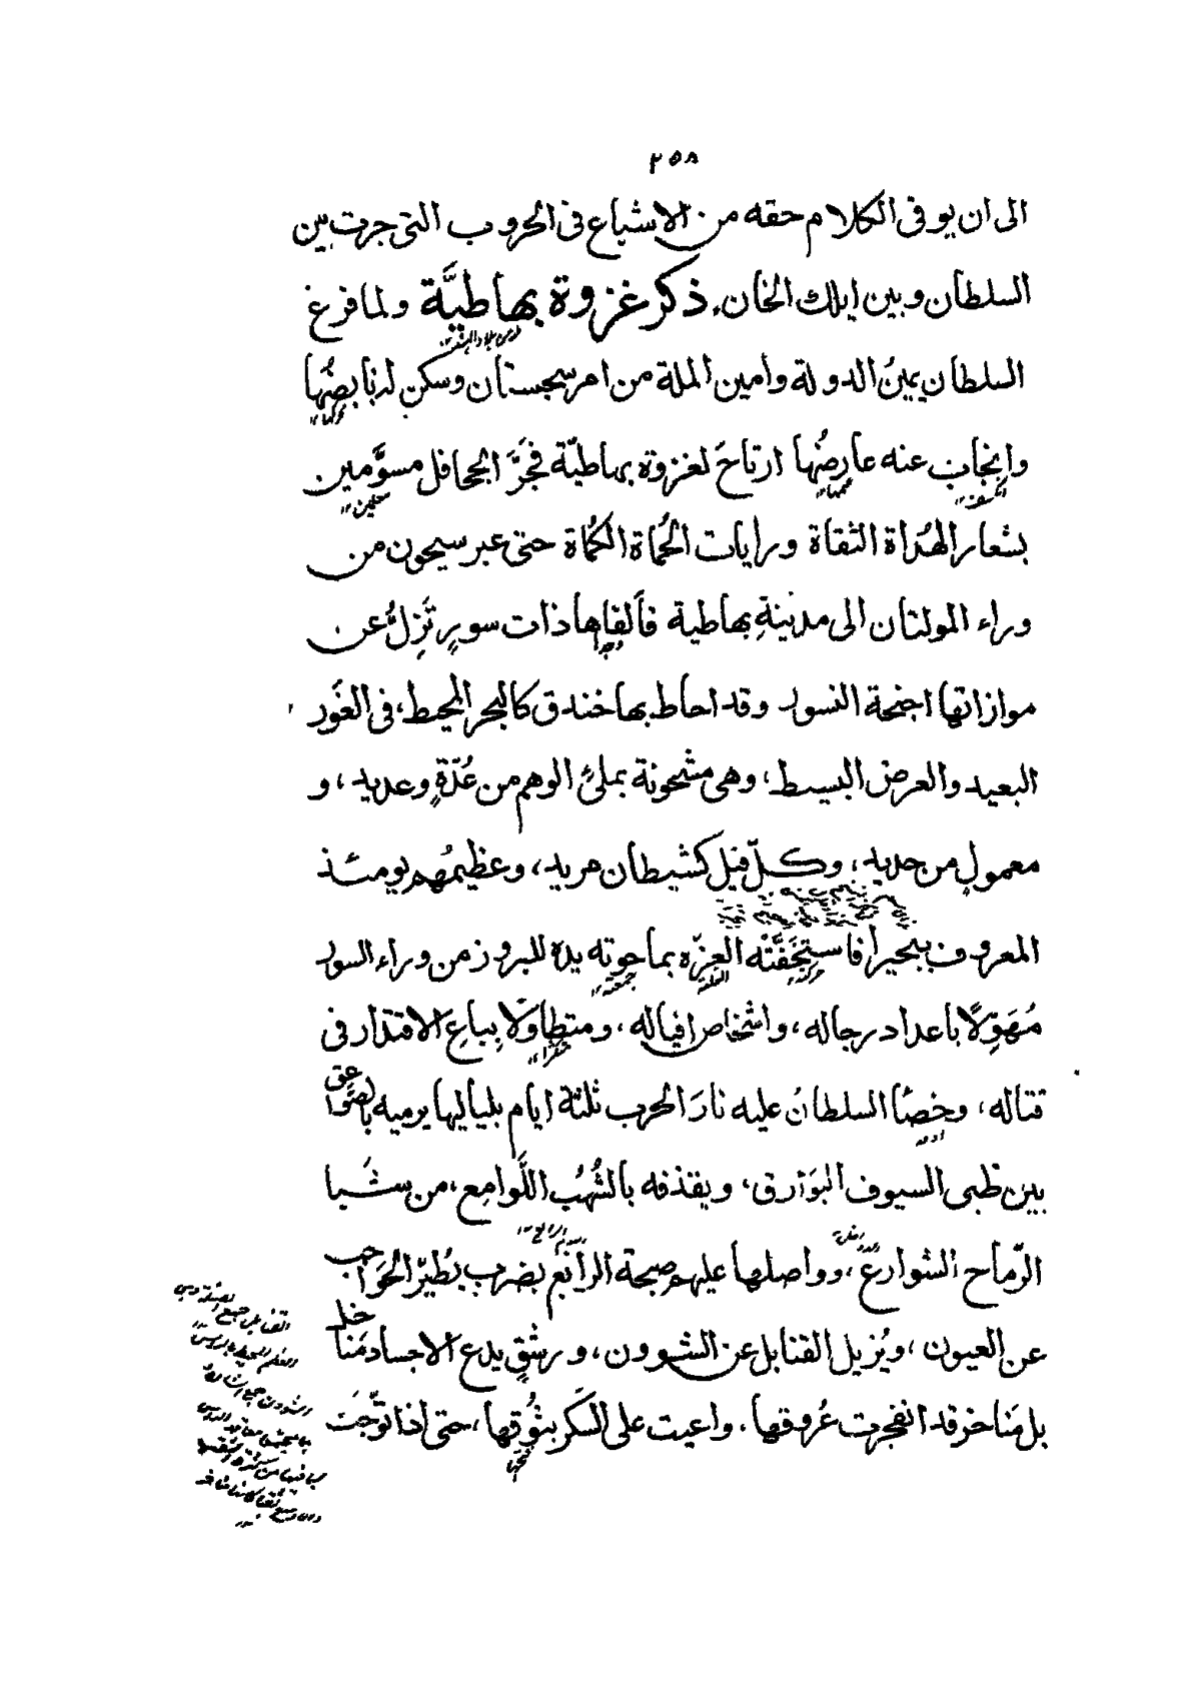 ٢٥٨
الى ان يوفى الكلام حقه من الاشباع فى الحروب التى جرت بين
السلطان وبين ايلك الخان، ذكر غزوة بهاطيَّة ولما فرغ
السلطان يمينُ الدولة وامين الملة من امر سجستان وسكن له نابضُها
وانجاب عنه عارضُها ارتاحَ لغزوة بهاطيّة فجَرَّ الجحافل مسوَّمين
بشعار الهُداة الثقاة ورايات الحُماة الكُماة حتى عبر سيحون من
وراء المولتان الى مدينةِ بهاطية فألفاها ذات سورٍ تَزِلُّ عن
موازاتها اجنحة النسور وقد احاط بها خندق كالبحر المحيط، فى الغَور
البعيد والعرض البسيط، وهى مشحونة بملئِ الوهم من عُدّةٍ وعديد، و
معمولٍ من حديد، وكلّ فيل كشيطان مريد، وعظيمُهم يومئذ
المعروف ببحيرا فاستخَفَّتْه العِزّه بما حوته يده للبروز من وراء السور
مُهَوِّلًا باعداد رجاله، واشخاص افياله، ومتطاوِلًا بِباعِ الاقتدار فى
قتاله، وحَصَأ السلطانُ عليه نارَ الحرب ثلثة ايام بلياليها يرميه بالصَّواعق
بين ظبى السيوف البَوَارق، ويقذفه بالشُّهُب اللَّوامِع، من شَبا
الرّماح الشوارعِ، وواصلها عليهم صبحة الرابع بضرب يُطيّر الحَواجب
عن العيون، ويُزيل القنابل عن الشوون، ورشقٍ يدع الاجساد مَناخل
بل مَناخر قد انفجرت عُروقها، واعيت على السَكر بثُوقها، حتى اذا توّجَت